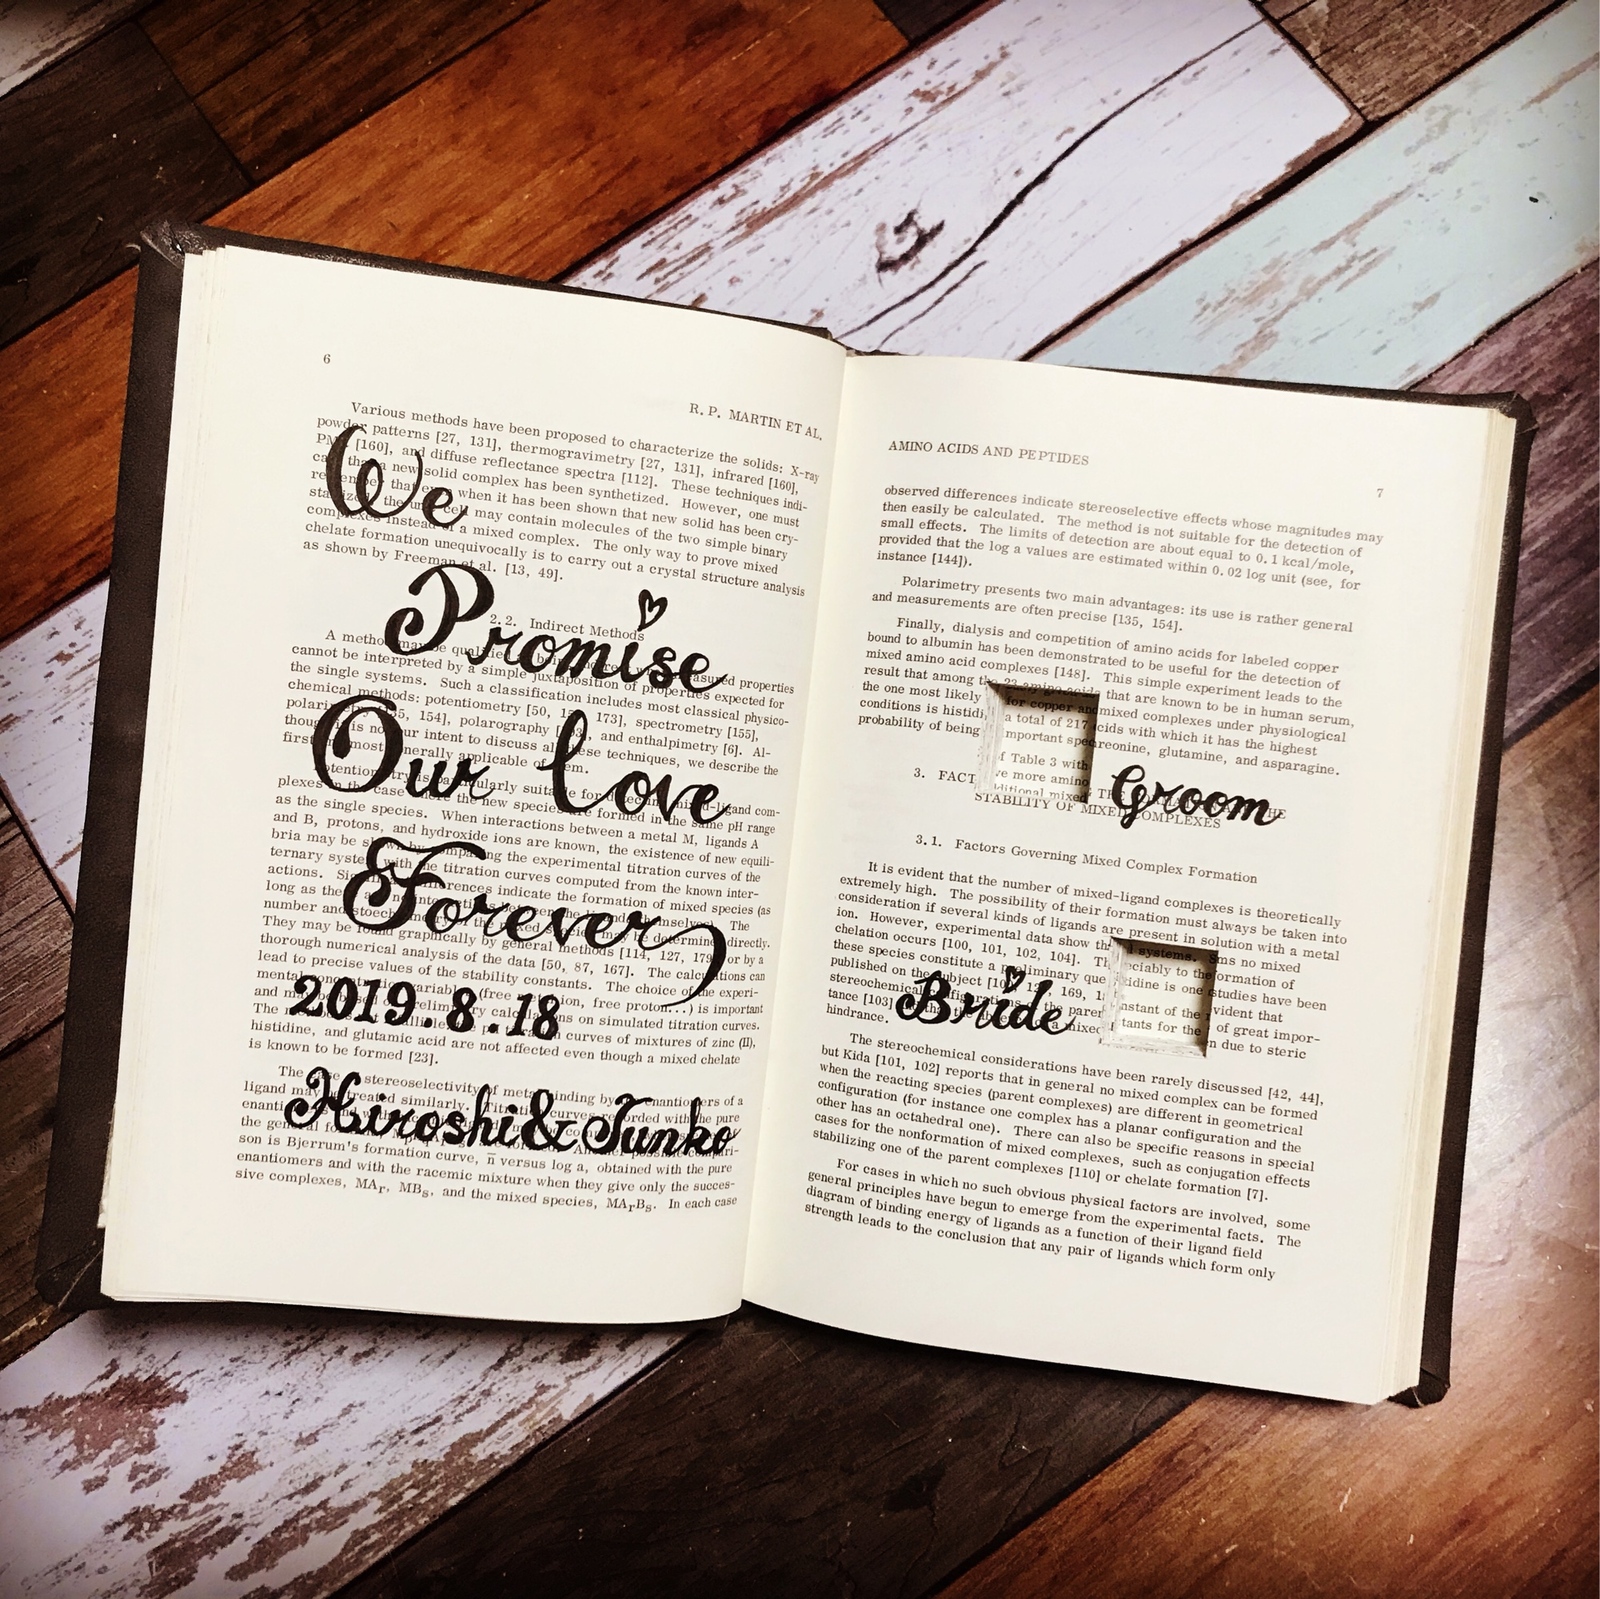 We
Promise
Our love
Forever
2019.8.18
Hiroshi & Junko
6
R. P. MARTIN ET AL.
Various methods have been proposed to characterize the solids: X-ray
powder patterns [27, 131], thermogravimetry [27, 131], infrared [160],
[160], and diffuse reflectance spectra [112]. These techniques indi-
that a new solid complex has been synthetized. However, one must
that when it has been shown that new solid has been cry-
the unit cell may contain molecules of the two simple binary
complexes instead of a mixed complex. The only way to prove mixed
chelate formation unequivocally is to carry out a crystal structure analysis
as shown by Freeman et al. [13, 49].
2.2. Indirect Methods
A method may be qualified measured properties
cannot be interpreted by a simple juxtaposition of properties expected for
the single systems. Such a classification includes most classical physico-
chemical methods: potentiometry [50, 173], spectrometry [155],
154], polarography and enthalpimetry [6]. Al-
though it is not our intent to discuss all these techniques, we describe the
first most generally applicable of them.
Potentiometry is particularly suitable for mixed-ligand com-
plexes in the case where the new species are formed in the same pH range
as the single species. When interactions between a metal M, ligands A
and B, protons, and hydroxide ions are known, the existence of new equili-
bria may be shown by comparing the experimental titration curves of the
ternary system with the titration curves computed from the known inter-
actions. differences indicate the formation of mixed species (as
long as the no interactions between the ligands themselves). The
number and of the mixed species may be determined directly.
They may be found graphically by general methods [114, 127, 179] or by a
thorough numerical analysis of the data [50, 87, 167]. The calculations can
lead to precise values of the stability constants. The choice of the experi-
mental variables (free free proton...) is important
and may be on simulated titration curves.
The curves of mixtures of zinc (II),
histidine, and glutamic acid are not affected even though a mixed chelate
is known to be formed [23].
The stereoselectivity of metal binding by enantiomers of a
ligand may be treated similarly. Titration curves recorded with the pure
the general
son is Bjerrum's formation curve, n̄ versus log a, obtained with the pure
enantiomers and with the racemic mixture when they give only the succes-
sive complexes, MAr, MBs, and the mixed species, MArBs. In each case
AMINO ACIDS AND PEPTIDES
7
observed differences indicate stereoselective effects whose magnitudes may
then easily be calculated. The method is not suitable for the detection of
small effects. The limits of detection are about equal to 0.1 kcal/mole,
provided that the log a values are estimated within 0.02 log unit (see, for
instance [144]).
Polarimetry presents two main advantages: its use is rather general
and measurements are often precise [135, 154].
Finally, dialysis and competition of amino acids for labeled copper
bound to albumin has been demonstrated to be useful for the detection of
mixed amino acid complexes [148]. This simple experiment leads to the
result that among the 23 amino acids that are known to be in human serum,
the one most likely for copper and mixed complexes under physiological
conditions is a total of 217 acids with which it has the highest
probability of being important threonine, glutamine, and asparagine.
of Table 3 with
more amino
additional mixed
3. THE
STABILITY OF MIXED COMPLEXES
Groom
3.1. Factors Governing Mixed Complex Formation
It is evident that the number of mixed-ligand complexes is theoretically
extremely high. The possibility of their formation must always be taken into
consideration if several kinds of ligands are present in solution with a metal
ion. However, experimental data show systems. no mixed
chelation occurs [100, 101, 102, 104]. to the formation of
these species constitute a preliminary is one studies have been
published on the subject 169, evident that
stereochemical the parent instant of the of great impor-
tance [103] mixed tants for the due to steric
hindrance.
Bride
The stereochemical considerations have been rarely discussed [42, 44],
but Kida [101, 102] reports that in general no mixed complex can be formed
when the reacting species (parent complexes) are different in geometrical
configuration (for instance one complex has a planar configuration and the
other has an octahedral one). There can also be specific reasons in special
cases for the nonformation of mixed complexes, such as conjugation effects
stabilizing one of the parent complexes [110] or chelate formation [7].
For cases in which no such obvious physical factors are involved, some
general principles have begun to emerge from the experimental facts. The
diagram of binding energy of ligands as a function of their ligand field
strength leads to the conclusion that any pair of ligands which form only